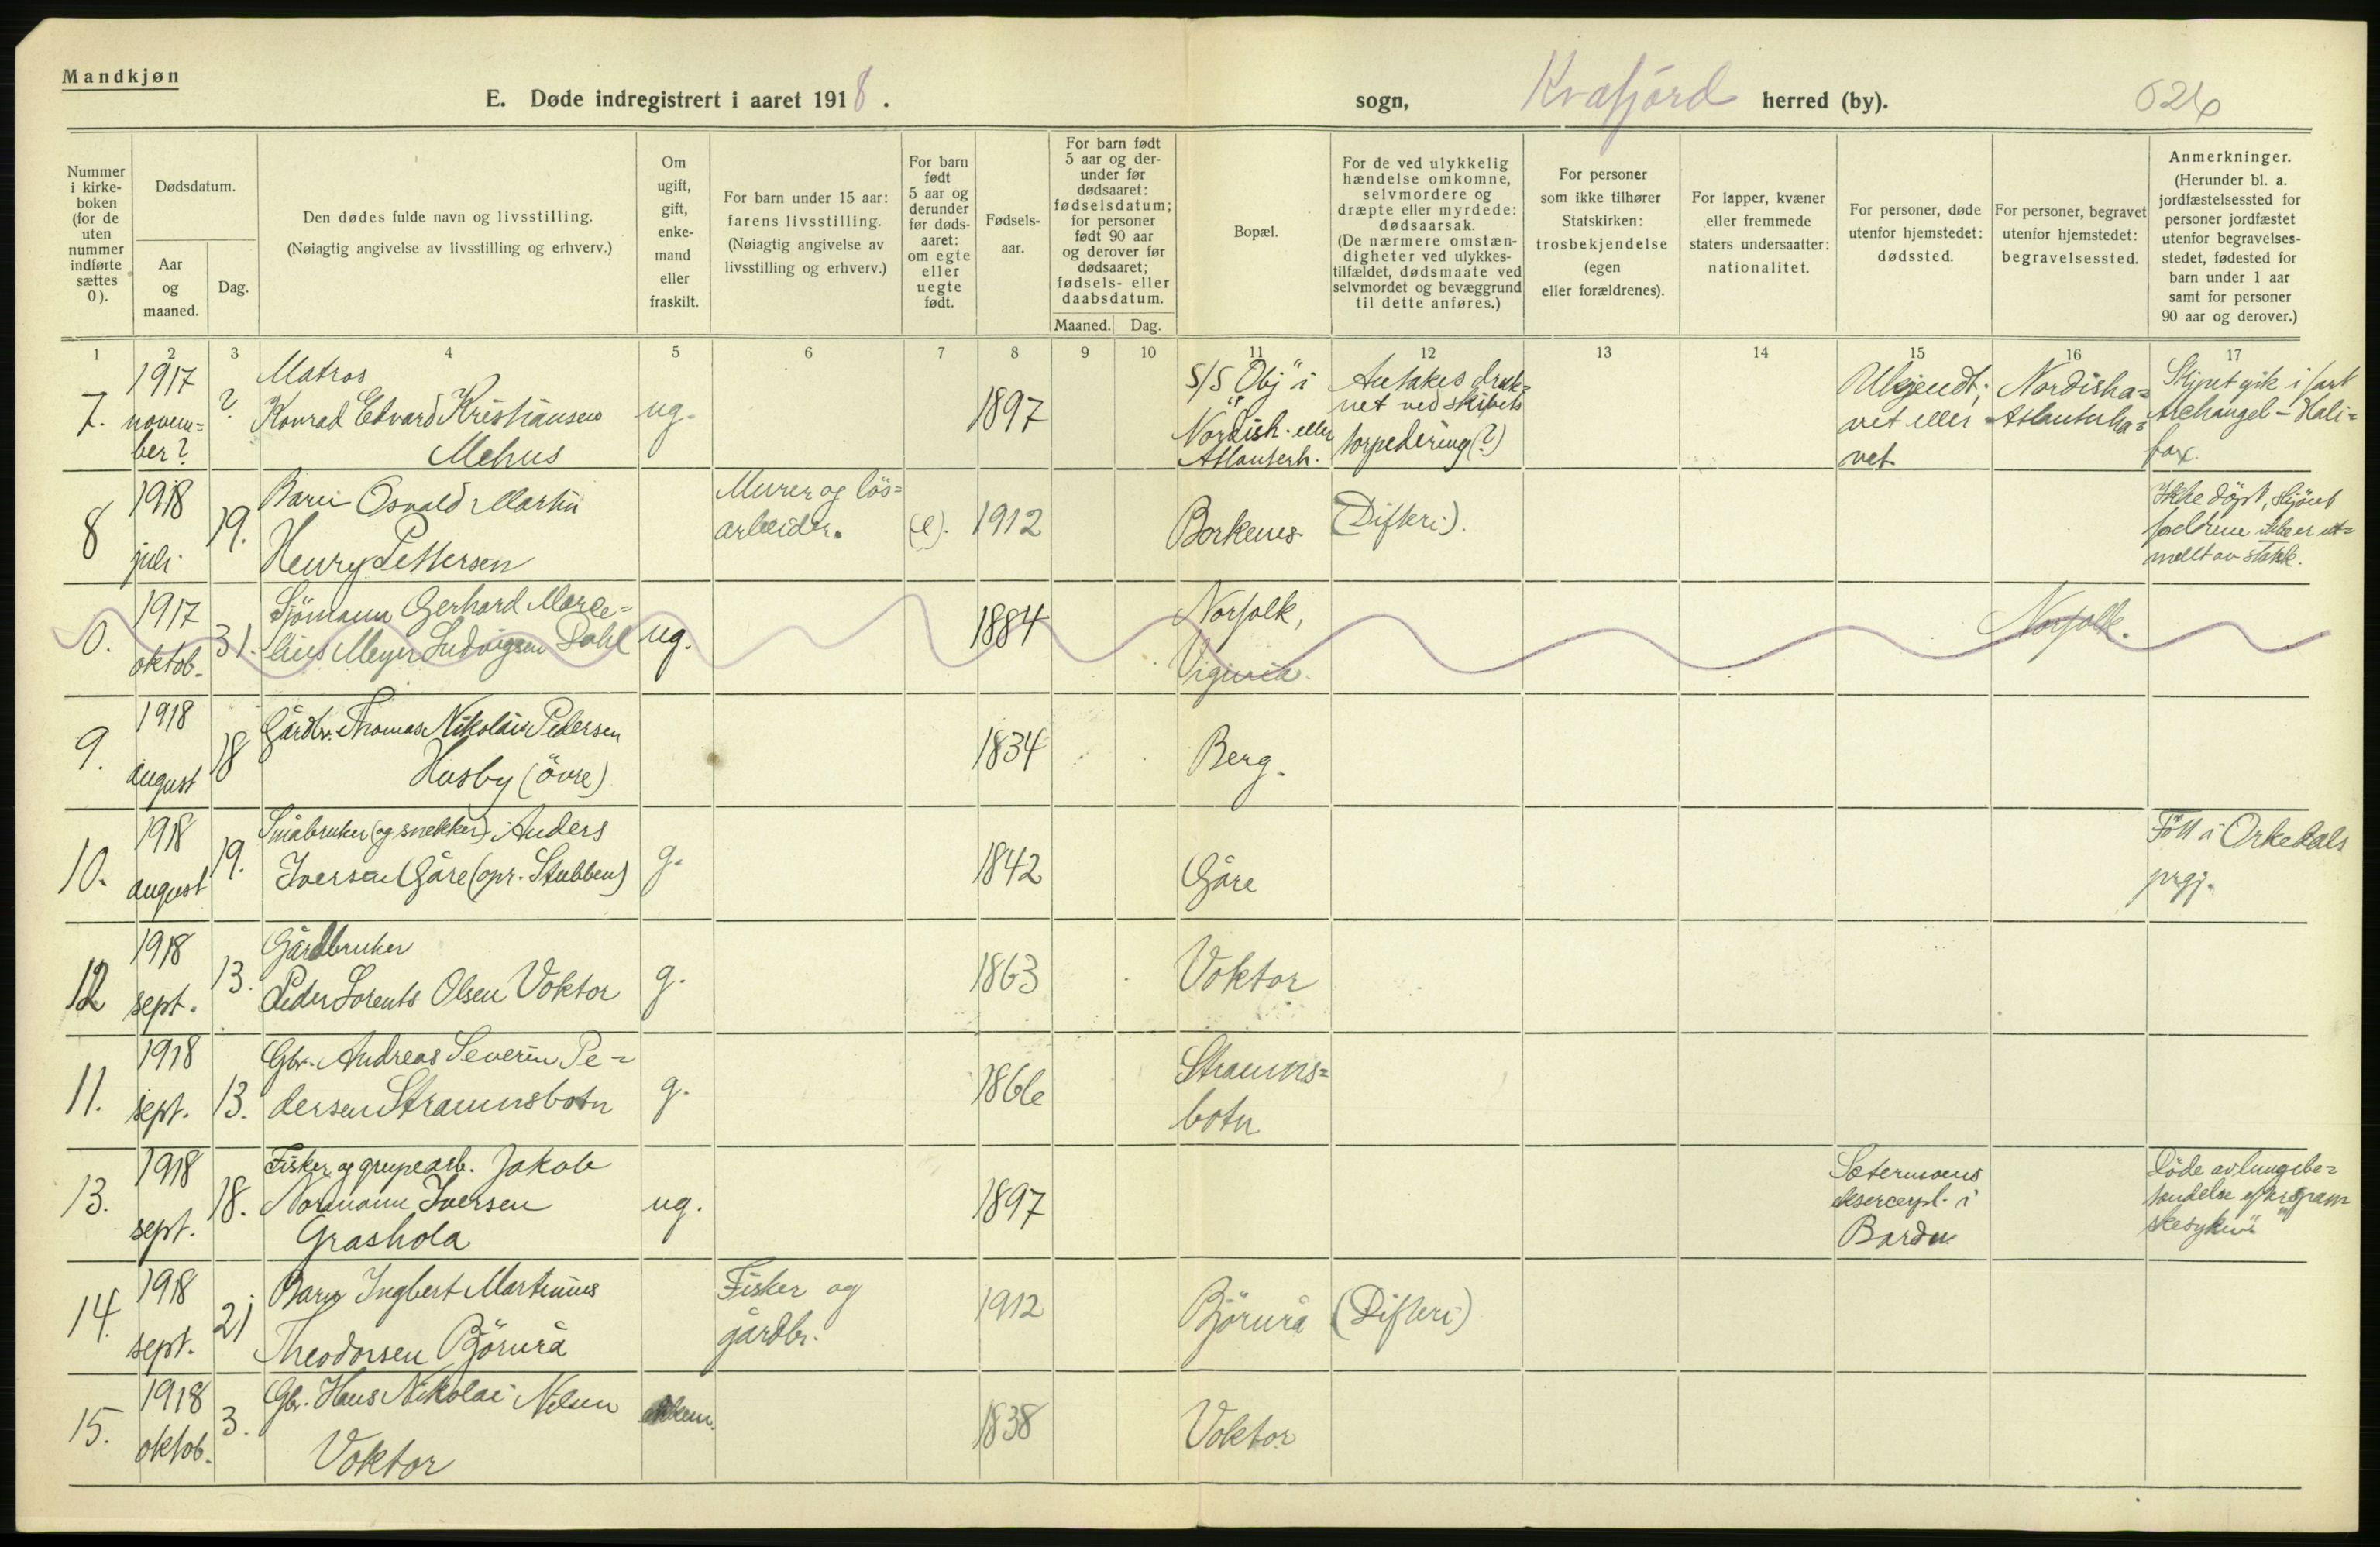 Mandkjøn
E. Døde indregistrert i aaret 1918.
sogn, Kvæfjord herred (by).
626
Nummer i kirke-boken (for de uten nummer indførte sættes 0).
Dødsdatum.
Aar og maaned.
Dag.
Den dødes fulde navn og livsstilling.
(Nøiagtig angivelse av livsstilling og erhverv.)
Om ugift, gift, enke-mand eller fraskilt.
For barn under 15 aar: farens livsstilling. (Nøiagtig angivelse av livsstilling og erhverv.)
For barn født 5 aar og derunder før døds-aaret: om egte eller uegte født.
Fødsels-aar.
For barn født 5 aar og der-under før dødsaaret: fødselsdatum; for personer født 90 aar og derover før dødsaaret; fødsels- eller daabsdatum.
Maaned. Dag.
Bopæl.
For de ved ulykkelig hændelse omkomne, selvmordere og dræpte eller myrdede: dødsaarsak. (De nærmere omstæn-digheter ved ulykkes-tilfældet, dødsmaate ved selvmordet og bevæggrund til dette anføres.)
For personer som ikke tilhører Statskirken: trosbekjendelse (egen eller forældrenes).
For lapper, kvæner eller fremmede staters undersaatter: nationalitet.
For personer, døde utenfor hjemstedet: dødssted.
For personer, begravet utenfor hjemstedet: begravelsessted.
Anmerkninger. (Herunder bl. a. jordfæstelsessted for personer jordfæstet utenfor begravelses-stedet, fødested for barn under 1 aar samt for personer 90 aar og derover.)
1 2 3 4 5 6 7 8 9 10 11 12 13 14 15 16 17
7. 1917 novem=ber? ? Matros Konrad Edvard Kristiansen Mehus ug. 1897 S/S "Obj" i Nordish. eller Atlanterh. Antakes druk=net ved skibets torpedering (?) Ukjendt; Nordisha=vet eller Atlanterha=vet Skipet gik i fart Archangel - Hali=fax.
8 1918 juli 19. Barn Osvald Martin Henry Pettersen Murer og løs=arbeider. (e). 1912 Borkenes. (Difteri). Ikke döpt, skjönt foreldrene ikke er ut=meldt av statsk.
0. 1917 oktob. 31. Sjömann Gerhard Marce=lius Meyer Ludvigsen Dahl ug. 1884 Norfolk, Viginia. Norfolk.
9. 1918 august 18 Gårdbr. Thomas Nikolai Pedersen Husby (övre) 1834 Berg.
10. 1918 august 19. Småbruker (og snekker) Anders Iversen Gåre (opr. Stubben) g. 1842 Gåre Föll i Orkedals prgj.
12 1918 sept. 13. Gårdbruker Peder Lorents Olsen Voktor g. 1863 Voktor
11. 1918 sept. 13. Gbr. Andreas Severin Pe=dersen Straumsbotn g. 1866 Straums=botn
13. 1918 sept. 18. Fisker og grupearb. Jakob Normann Iversen Grashola ug. 1897 Sætermoens eksercerpl. i Bardu Döde av lungebe=tendelse efter "spanskesyken"
14. 1918 sept. 21 Barn Ingbert Martinius Theodorsen Björnrå Fisker og gårdbr. 1912 Björnrå (Difteri)
15. 1918 oktob. 3. Gbr. Hans Nikolai Nilsen Voktor enkem. 1838 Voktor